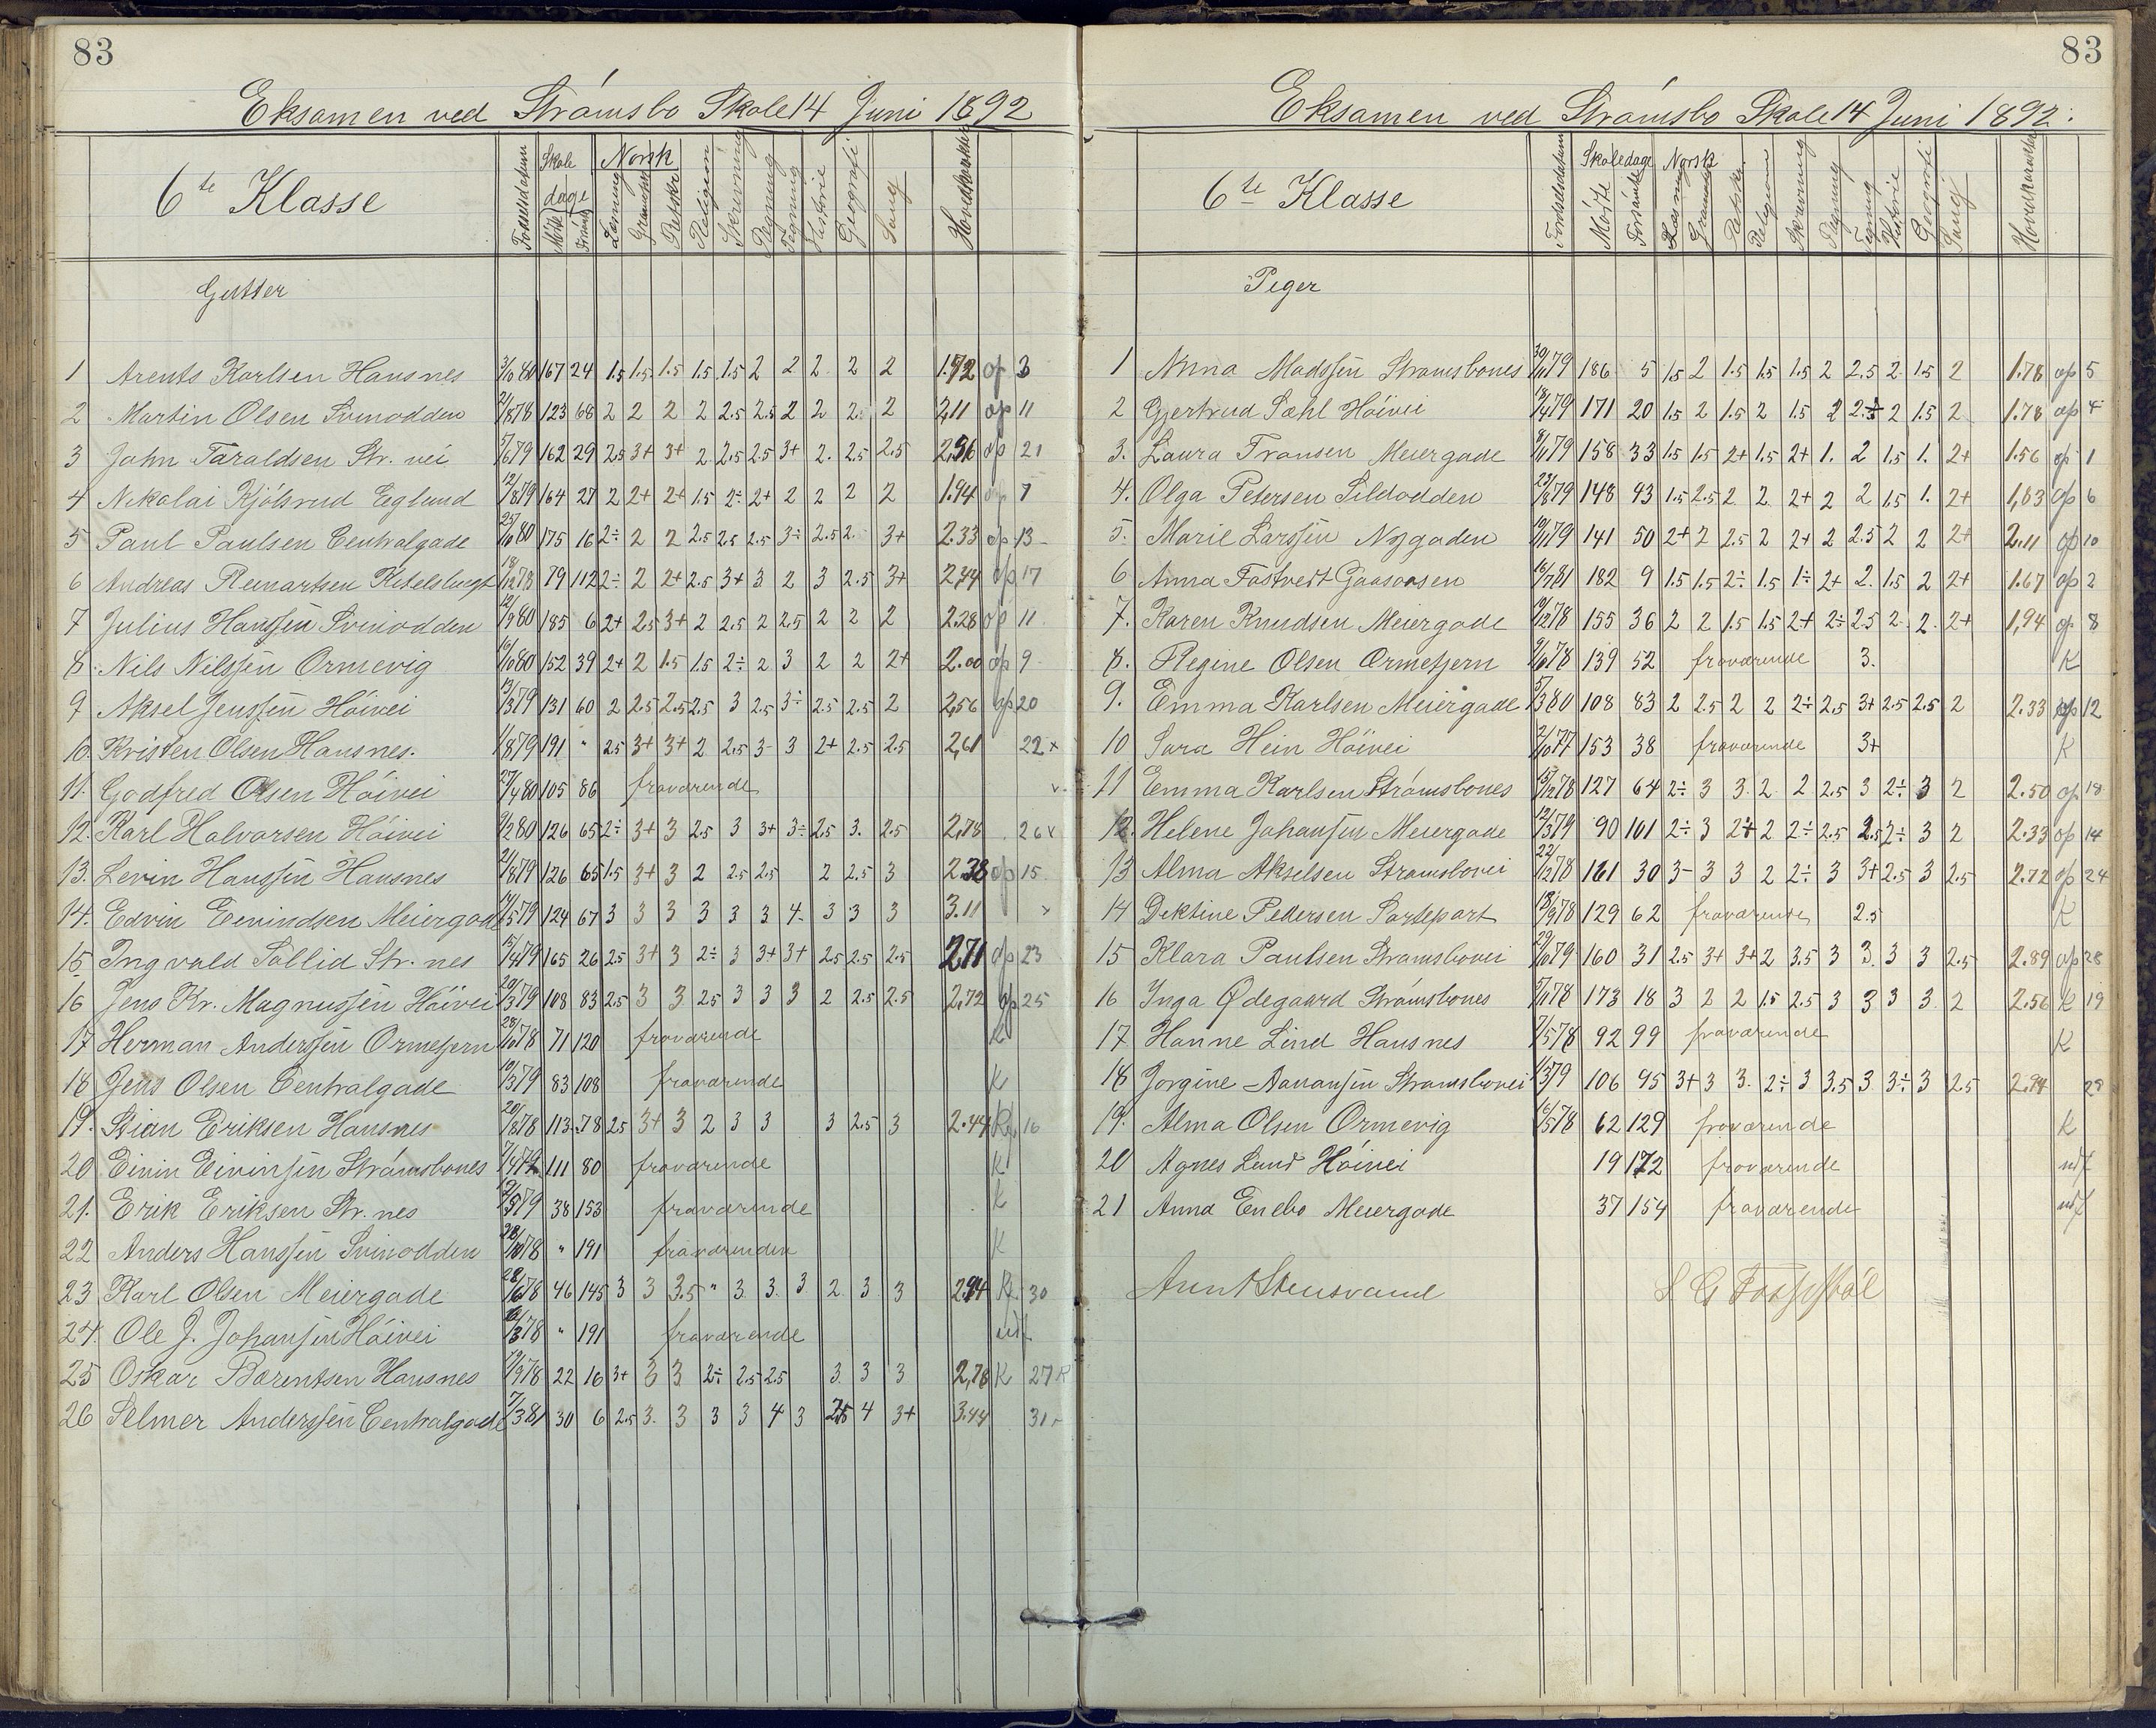 83
Eksamen ved Strömsbo Skole 14 Juni 1892
6te Klasse
Fødselsdatum Skole dage Mötte Forsömte Norsk Læsning Gramatik Retskr. Religion Skrivning Regning Tegning Historie Geografi Sang Hovedkarakter
Gutter
1 Arents Karlsen Hausnes 3/10 80 167 24 1.5 1.5 1.5 1.5 1.5 2 2 2 2 2 1.72 op 3
2 Martin Olsen Svinodden 21/8 78 123 68 2 2 2 2 2.5 2.5 2 2 2 2 2,11 op 11
3 John Taraldsen Str. vei 5/6 79 162 29 2.5 3+ 3+ 2 2.5 2.5 3+ 2. 2.5 2.5 2,56 op 21
4 Nikolai Kjölsrud Eglund 12/8 79 164 27 2 2+ 2+ 1.5 2÷ 2+ 2 2 2 2 1.94 op 7
5 Paul Paulsen Centralgade 25/6 80 175 16 2÷ 2 2 2.5 2.5 2.5 3÷ 2.5 2. 3+ 2.33 op 13
6 Andreas Reinartsen Kitelsbugt 18/12 78 79 112 2÷ 2 2+ 2.5 3+ 3 2 3 2.5 3+ 2,44 op 17
7 Julius Hanssen Svinodden 12/9 80 185 6 2+ 2.5 3+ 2 2.5 2 2.5 2 2 2 2.28 op 11
8. Nils Nilssen Ormevig 16/10 80 152 39 2+ 2 1.5 1.5 2÷ 2 3 2 2 2+ 2.00 op 9
9 Aksel Jenssen Höivei 13/3 79 131 60 2 2.5 2.5 2.5 3 2.5 3÷ 2.5 2.5 2 2,56 op 20
10. Kristen Olsen Hausnes. 1/8 79 191 " 2.5 3+ 3+ 2 2.5 3- 3 2+ 2.5 2.5 2,61 22 x
11. Godfred Olsen Höivei 27/4 80 105 86 fraværende
12. Karl Halvorsen Höivei 9/2 80 126 65 2÷ 3+ 3 2.5 3 3+ 3÷ 2.5 3. 2.5 2,78 26 x
13. Levin Hanssen Hausnes 21/8 79 126 65 1.5 3+ 3 2 2.5 2.5 2 2.5 3 2.38 op 15
14. Edvin Eevindsen Meiergade 14/5 79 124 67 3 3 3 3 3 3 4- 3 3 3 3.11 x
15 Ingvald Sollid Str. nes 5/4 79 165 26 2.5 3+ 3 2÷ 3 3+ 3+ 2.5 2.5 2.5 2.71 op 23
16 Jens Kr. Magnussen Höivei 20/3 79 108 83 2.5 3 3 2.5 3 3 3 2 2.5 2.5 2,72 op 25
17 Herman Anderssen Ormetjern 28/10 78 71 120 fraværende K
18 Jens Olsen Centralgade 19/3 79 83 108 fraværende K
19. Stian Eriksen Hausnes 20/8 78 113 78 2.5 3+ 3 2 3 3 3 2.5 3 2.44 K 16
20 Eivin Eivinsen Strömsbones 7/4 79 111 80 fraværende K
21. Erik Eriksen Str. nes 12/5 79 38 153 fraværende K
22 Anders Hanssen Svinodden 28/10 78 " 191 fraværenden K
23 Karl Olsen Meiergade 28/6 78 46 145 3 3 3.5 " 3 3. 3 2 3 3 2.94 K 30
24. Ole J. Johansen Höivei 16/3 78 " 191 fraværende udf.
25 Oskar Barentsen Hausnes 19/9 78 22 16 3+ 3 3 2÷ 2.5 2.5 3 3 3 2,78 K 27
26 Selmer Anderssen Centralgade 7/3 81 30 6 2.5 3. 3 3 3 4 3 2.5 4 3+ 3.44 31
83
Eksamen ved Strömsbo Skole 14 Juni 1892.
6te Klasse
Fødselsdatum Skoledage Mötte Forsömte Norsk Læsning Gramatik Retskr. Religion Skrivning Regning Tegning Historie Geografi Sang Hovedkarakter
Piger
1 Anna Madssen Strömsbones 30/11 79 186 5 1.5 2 1.5 1.5 1.5 2 2.5 2 1.5 2 1.78 op 5
2 Gjertrud Dahl Höivei 18/4 79 171 20 1.5 2 1.5 2 1.5 2 2.+ 2 1.5 2 1.78 op 4
3. Laura Fransen Meiergade 8/11 79 158 33 1.5 1.5 2+ 1.5 2+ 1. 2 1.5 1. 2+ 1.56 op 1
4. Olga Petersen Sildodden 23/8 79 148 43 1.5 2.5 2 2 2+ 2 2 1.5 1. 2+ 1,83 op 6
5. Marie Larssen Nygaden 19/11 79 141 50 2+ 2 2.5 2 2+ 2 2.5 2 2 2+ 2.11 op 10
6 Anna Fostvert Gaasoasen 16/7 81 182 9 1.5 1.5 2÷ 1.5 1÷ 2+ 2. 1.5 2 2+ 1.67 op 2
7. Karen Knudsen Meiergade 19/12 78 155 36 2 2 1.5 1.5 2+ 2÷ 2.5 2 2. 2+ 1,94 op 8
8. Regine Olsen Ormetjern 9/6 78 139 52 fraværende 3. K
9. Emma Karlsen Meiergade 5/3 80 108 83 2 2.5 2 2 2÷ 2.5 3+ 2.5 2.5 2 2.33 op 12
10 Sara Hein Höivei 2/10 77 153 38 fraværende 3+ K
11 Emma Karlsen Strömsbones 15/12 78 127 64 2÷ 3 3. 2 2 2.5 3 2÷ 3 2 2.50 op 18
12. Helene Johansen Meiergade 12/3 79 90 101 2÷ 3 2+ 2 2÷ 2.5 2.5 2÷ 3 2 2.33 op 14
13 Alma Akselsen Strömsbovei 22/12 78 161 30 3- 3 3 2 2÷ 3 3+ 2.5 3 2.5 2.72 op 24
14 Dektine Pedersen Sortepart 18/9 78 129 62 fraværende 2.5 K
15 Klara Paulsen Strömsbovei 29/10 79 160 31 2.5 3+ 3+ 2 3.5 3 3. 3 3 2.5 2.89 op 28
16 Inga Ødegaard Strömsbones 9/11 78 173 18 3 2 2 1.5 2.5 3 3 3 3. 2 2.56 K 19
17 Hanne Lind Hausnes 7/5 78 92 99 fraværende K
18 Jorgine Aanansen Strömsbovei 1/5 79 106 95 3+ 3 3. 2÷ 3 3.5 3 3÷ 3 2.5 2.94 29
19. Alma Olsen Ormevig 16/5 78 62 129 fraværende K
20 Agnes Lund Höivei 19 172 fraværende udf
21 Anna Enebo Meiergade 37 154 fraværende udf